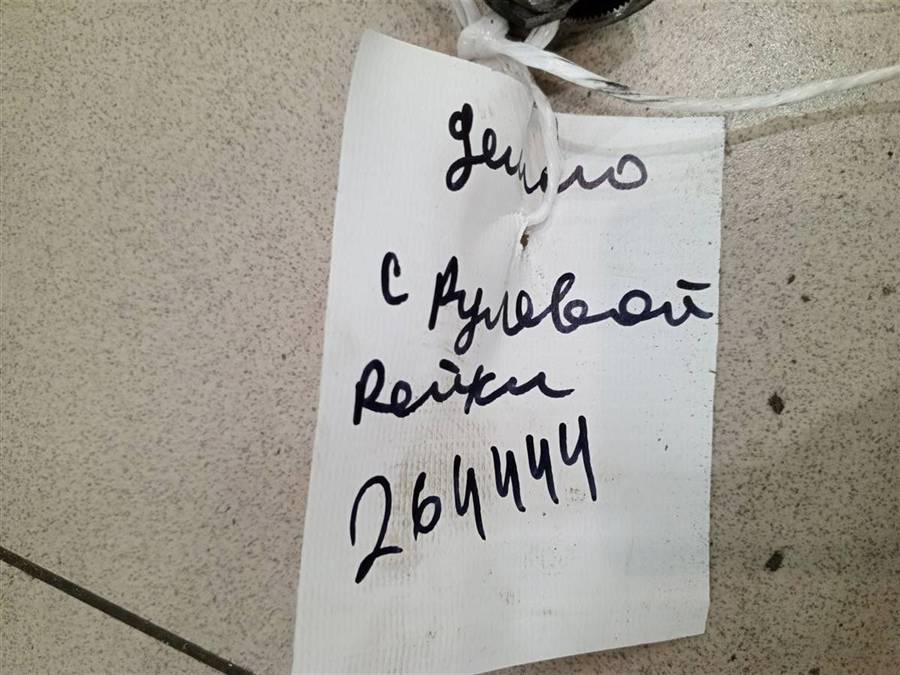 Демио
с Рулевой
Рейки
264444